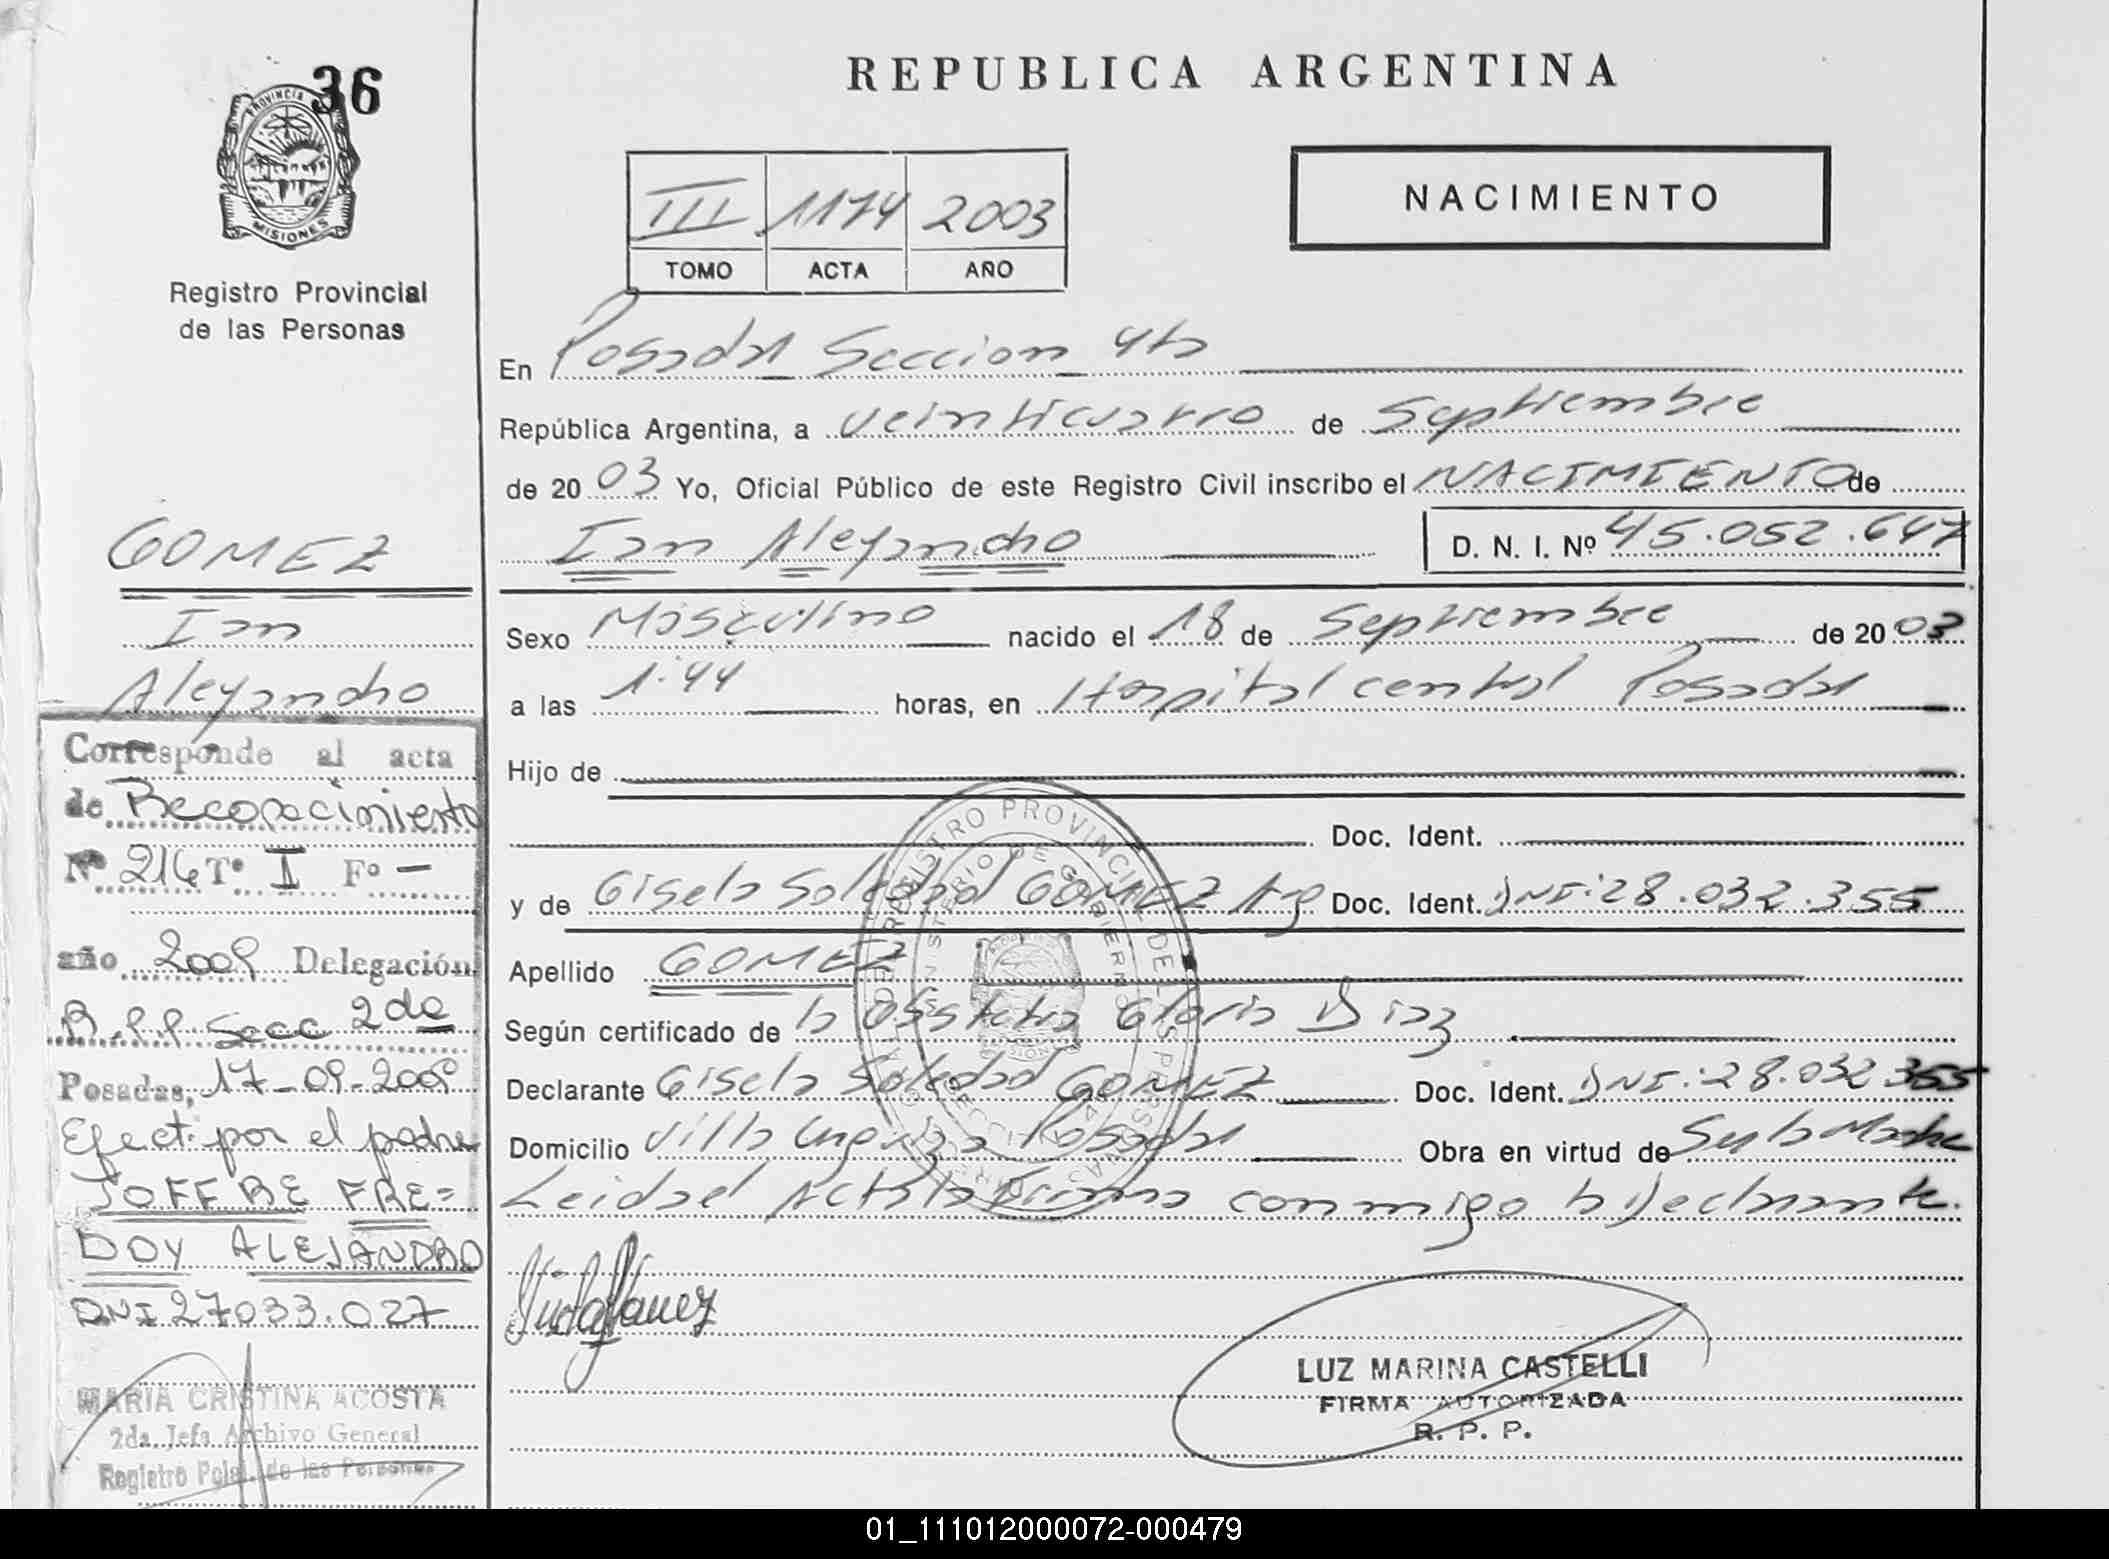 36
PROVINCIA
MISIONES
Registro Provincial
de las Personas
GOMEZ
Ian
Alejandro
Corresponde al acta
de Reconocimiento
Nº 216 Tº I Fº -
año 2009 Delegación
R.P.P. Secc 2da
Posadas, 17-09-2009
Efect. por el padre
JOFFRE FRE=
DDY ALEJANDRO
DNI 27033.027
MARIA CRISTINA ACOSTA
2da. Jefa Archivo General
Registro Pcial. de las Personas
REPUBLICA ARGENTINA
III 1174 2003
TOMO ACTA AÑO
NACIMIENTO
En Posadas Seccion 4ta
República Argentina, a veinticuatro de Septiembre
de 2003 Yo, Oficial Público de este Registro Civil inscribo el NACIMIENTO de
Ian Alejandro D. N. I. Nº 45.052.647
Sexo Masculino nacido el 18 de Septiembre de 2003
a las 1:44 horas, en Hospital central Posadas
Hijo de
Doc. Ident.
y de Gisela Soledad GOMEZ Arg Doc. Ident. DNI: 28.032.355
Apellido GOMEZ
Según certificado de la Obstetra Gloria Diaz
Declarante Gisela Soledad GOMEZ Doc. Ident. DNI: 28.032.355
Domicilio Villa Posadas Obra en virtud de Ser la Madre
Leida el Acta la Firma conmigo la Declarante.
LUZ MARINA CASTELLI
FIRMA AUTORIZADA
R. P. P.
01_111012000072-000479